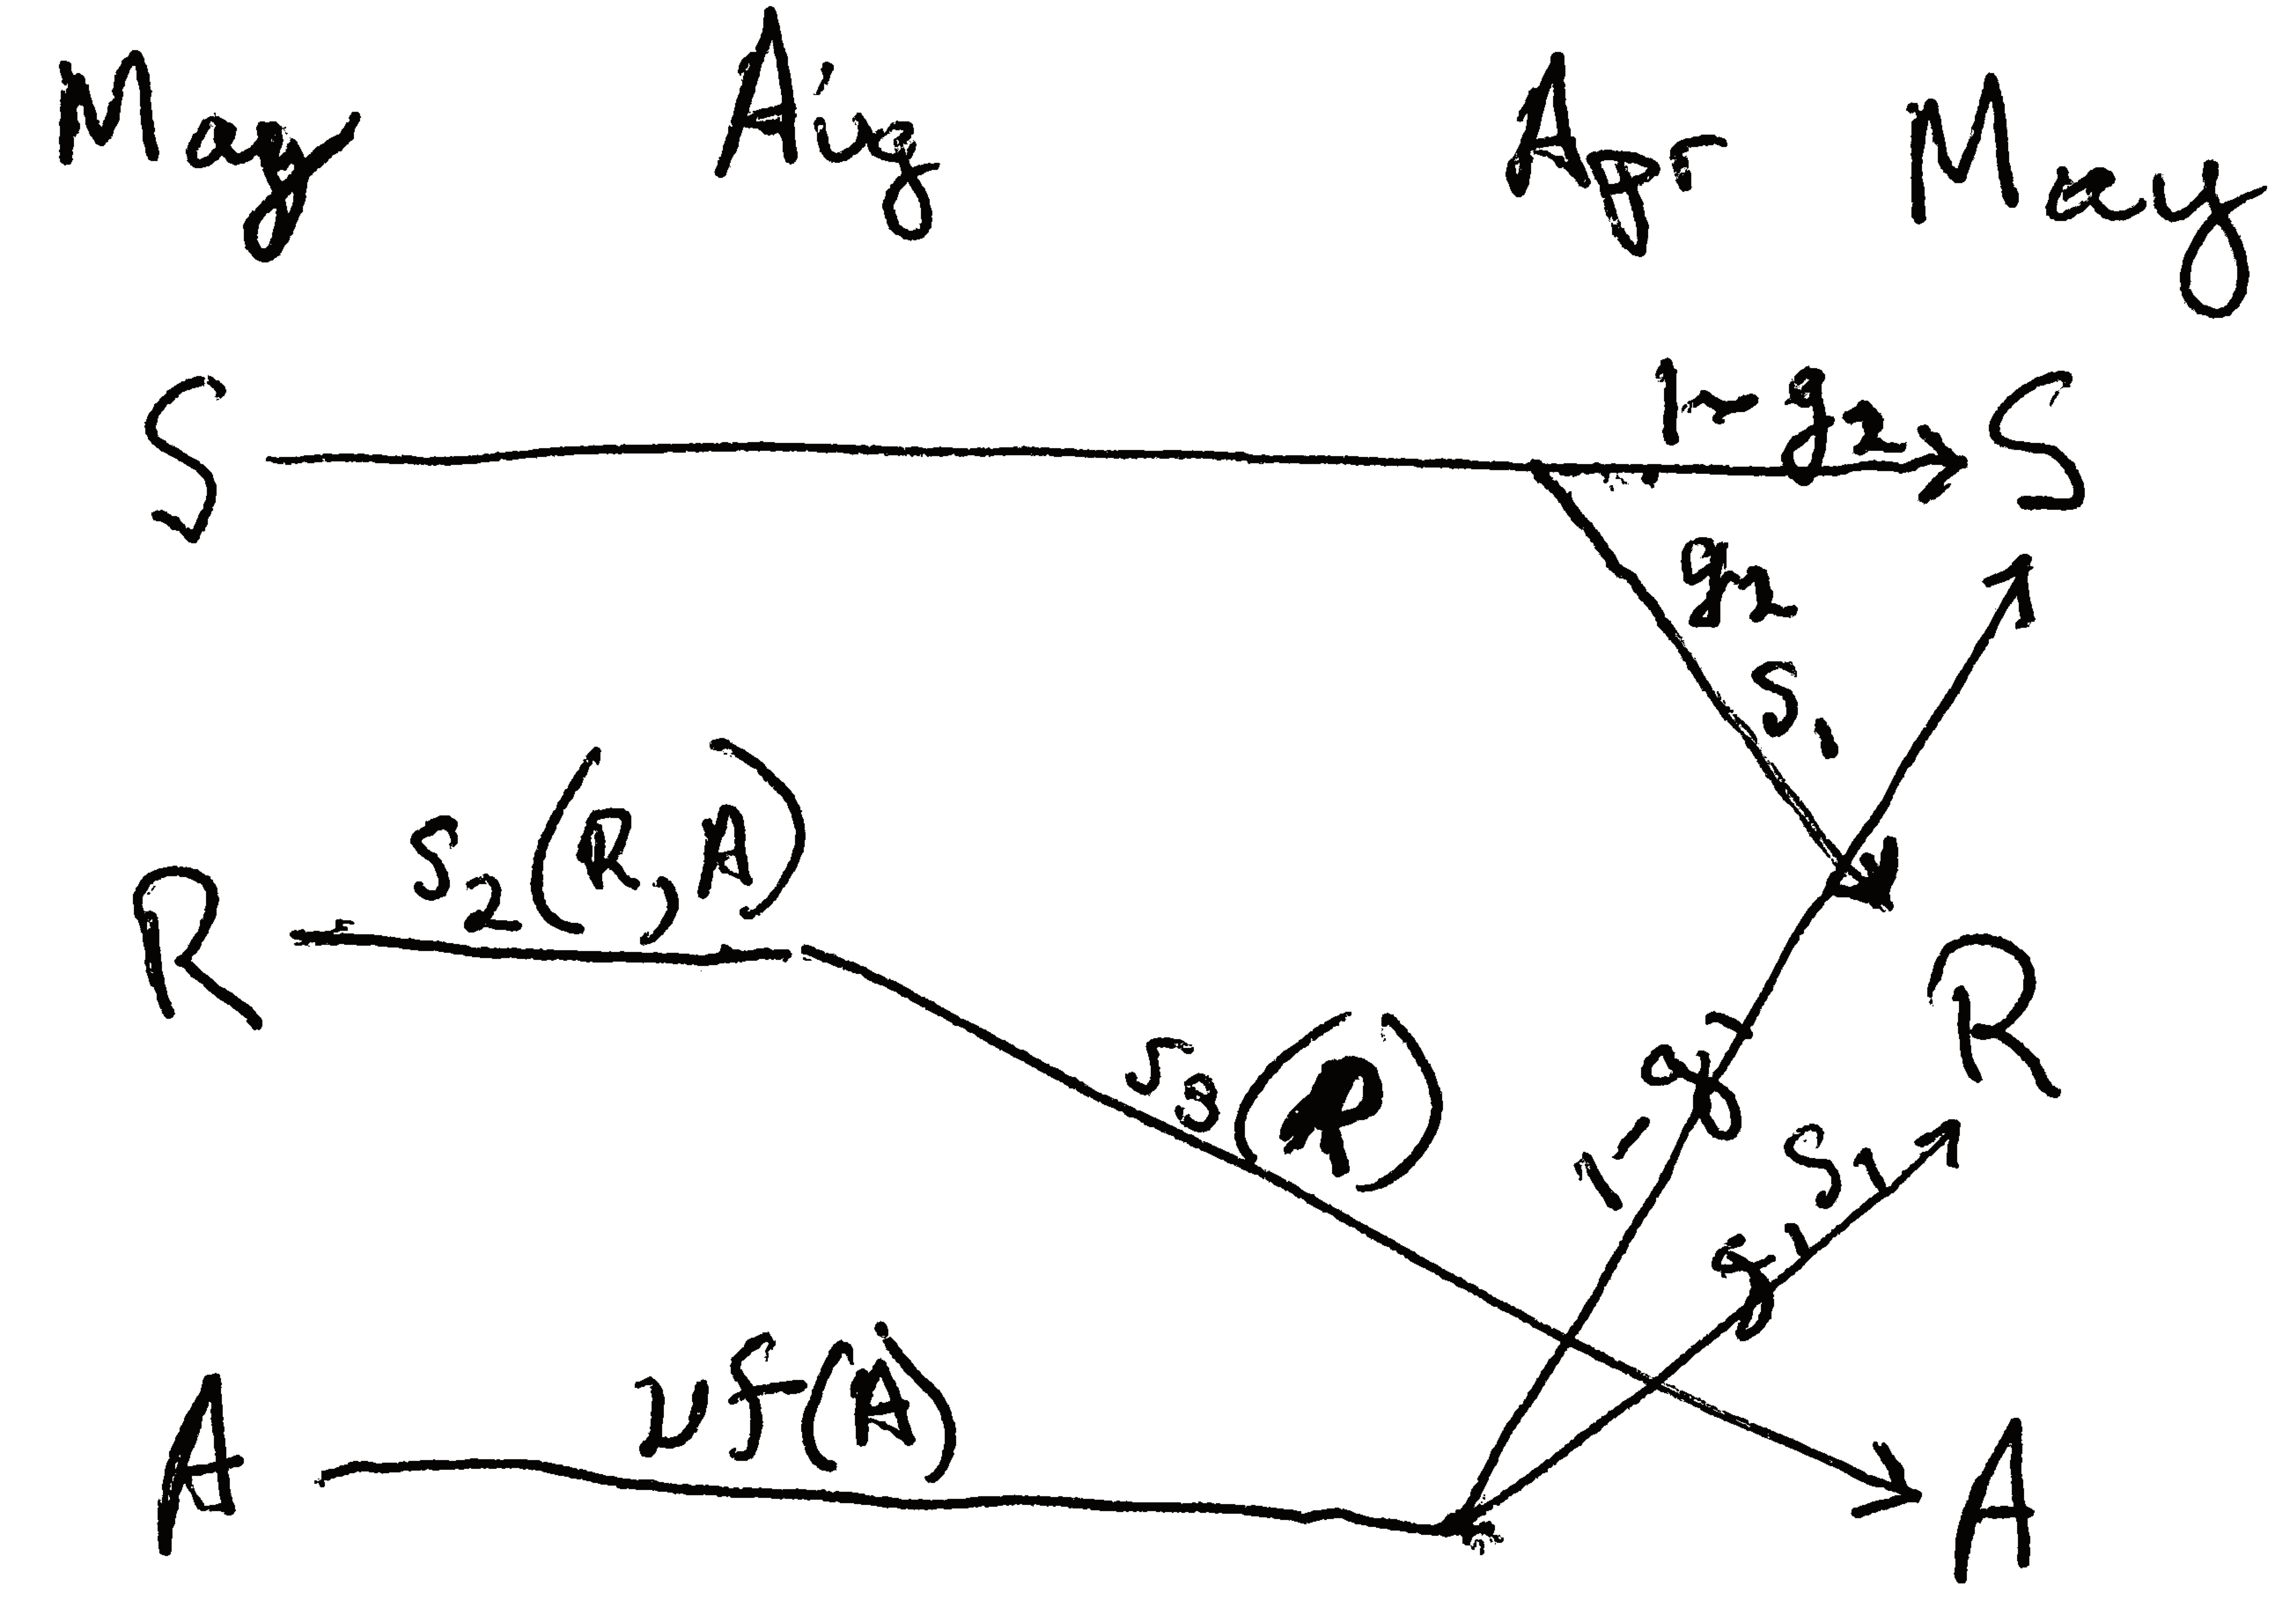 May Aug Apr May
S 1-g2 S
g2
s1
s2(R,A)
R R
s3(R)
1-g1
g1 s1
νf(A)
A A